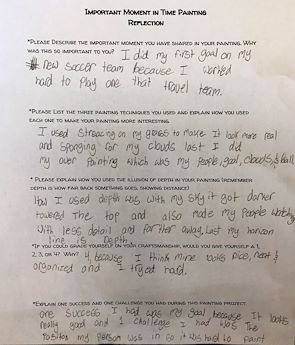 Important Moment in Time Painting
Reflection
*Please describe the important moment you have shared in your painting. Why
was this so important to you? I did my first goal on my
new soccer team because I worked
hard to play one that travel team.
*Please list the three painting techniques you used and explain how you used
each one to make your painting more interesting.
I used streacing on my grass to make it look more real
and sponging for my clouds last I did
my over painting which was my people, goal, clouds, & ball.
*Please explain how you used the illusion of depth in your painting (remember
depth is how far back something goes, showing distance)
How I used depth was with my sky it got darker
towered the top and also made my people watching
with less detail and farther away, Last my horizon
line is Depth.
*If you could grade yourself on your craftsmanship, would you give yourself a 1,
2, 3, or 4? Why? 4 because I think mine looks nice, neat &
organized and I tryed hard.
*Explain one success and one challenge you had during this painting project.
one success I had was my goal because it looks
really good and 1 challenge I had was the
position my person was in so it was hard to paint